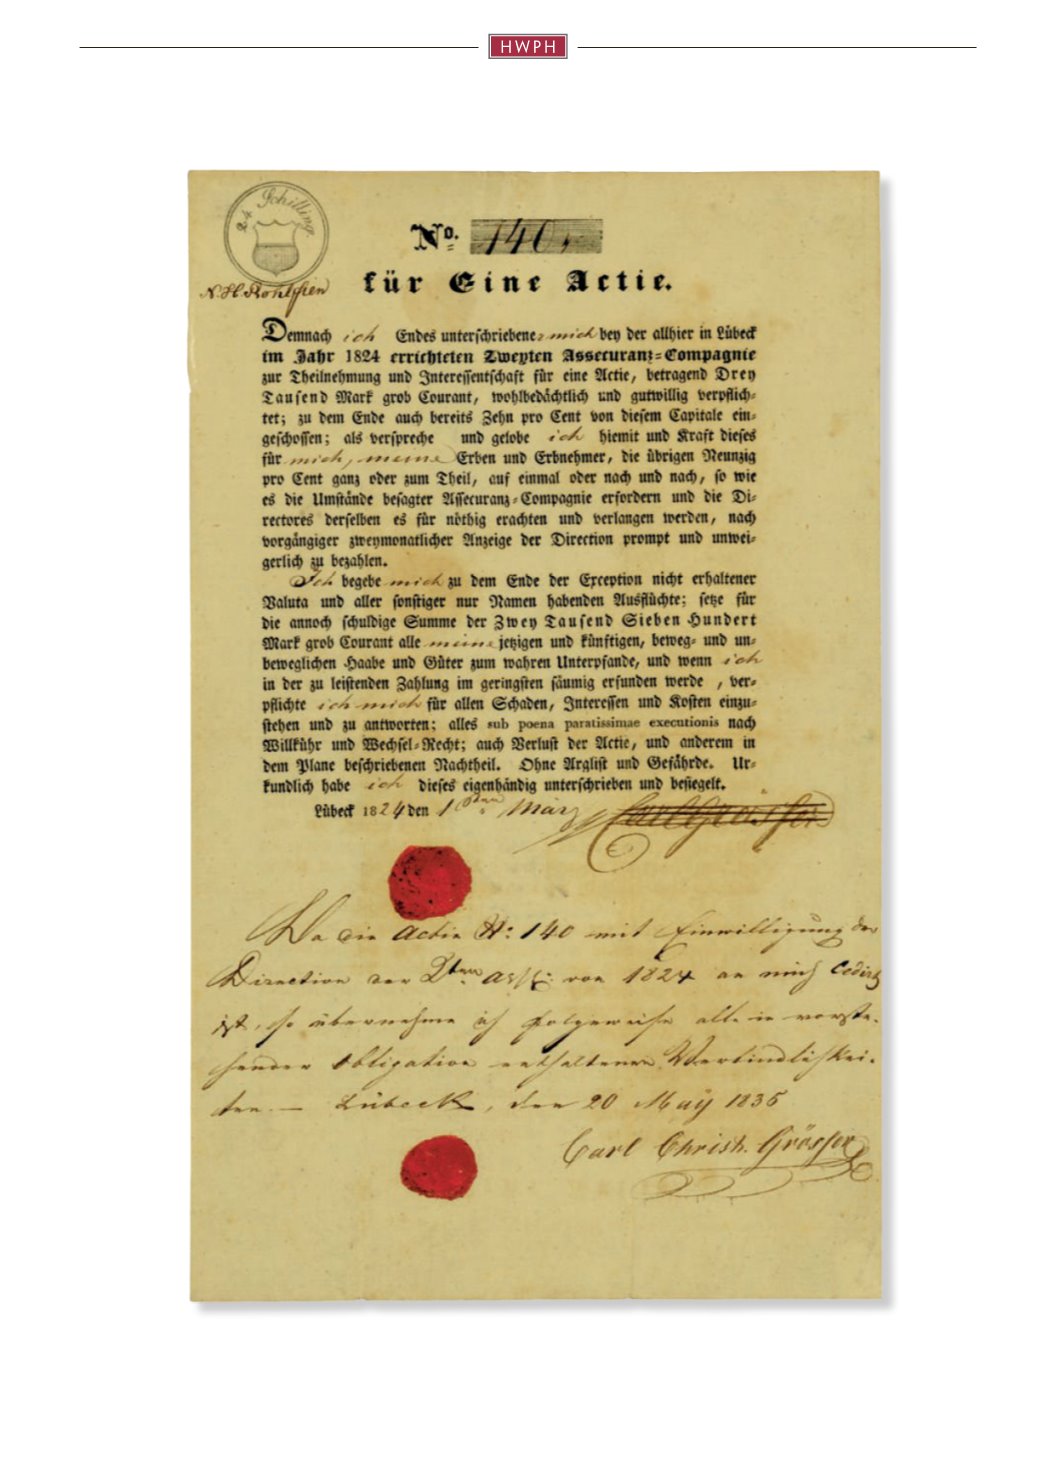 HWPH
24 Schilling
No. 140,
N. H. Rohlffien
für Eine Actie.
Demnach ich Endes unterschriebener mich bey der allhier in Lübeck
im Jahr 1824 errichteten Zweyten Assecuranz-Compagnie
zur Theilnehmung und Interessentschaft für eine Actie, betragend Drey
Tausend Mark grob Courant, wohlbedächtlich und gutwillig verpflich-
tet; zu dem Ende auch bereits Zehn pro Cent von diesem Capitale ein-
geschossen; als verspreche und gelobe ich hiemit und Kraft dieses
für mich, meine Erben und Erbnehmer, die übrigen Neunzig
pro Cent ganz oder zum Theil, auf einmal oder nach und nach, so wie
es die Umstände besagter Assecuranz-Compagnie erfordern und die Di-
rectores derselben es für nöthig erachten und verlangen werden, nach
vorgängiger zweymonatlicher Anzeige der Direction prompt und unwei-
gerlich zu bezahlen.
Ich begebe mich zu dem Ende der Exception nicht erhaltener
Valuta und aller sonstiger nur Namen habenden Ausflüchte; setze für
die annoch schuldige Summe der Zwey Tausend Sieben Hundert
Mark grob Courant alle meine jetzigen und künftigen, beweg- und un-
beweglichen Haabe und Güter zum wahren Unterpfande, und wenn ich
in der zu leistenden Zahlung im geringsten säumig erfunden werde , ver-
pflichte ich mich für allen Schaden, Interessen und Kosten einzu-
stehen und zu antworten; alles sub poena paratissimae executionis nach
Willkühr und Wechsel-Recht; auch Verlust der Actie, und anderem in
dem Plane beschriebenen Nachtheil. Ohne Arglist und Gefährde. Ur-
kundlich habe ich dieses eigenhändig unterschrieben und besiegelt.
Lübeck 1824 den 1 März Carl Grösser
Da die Actie N: 140 mit Einwilligung der
Direction der 2ten Ass: von 1824 an mich cedirt
ist, so übernehme ich folgeweise alle in vorste-
hender Obligation enthaltenen Verbindlichkei-
ten. — Lübeck, den 20 May 1835
Carl Christ. Grösser